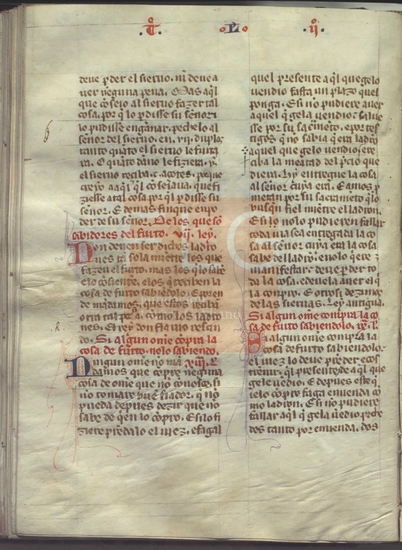 T L II
deue perder el sieruo, ni deue a
uer neguna pena. Mas aql
que consejo al sieruo fazer tal
cosa, por q lo pdisse su señor i
lo pudisse engañar, pechelo al
señor del sieruo en
tanto quanto el sieruo le furta
ra. E quanto daño le fiziera,
el sieruo reciba açotes, porque
creyo aql ql conseiaua, que fi
ziesse atal cosa por ql pdisse su
señor. E demas finque en po
der de su señor. De los que so
sabidores del furto. VII. ley.
Non deuen ser dichos ladro
nes tan sola miente los que
fazen el furto, mas los qlo sabe
e lo consiente, e los q reciben la
cosa de furto sabiendolo. E por en
de mandamos, que ellos
tal pena, como los ladro
nes. El rey don flauio resçin
do. Si algun ome compra la
cosa de furto, nolo sabiendo.
Ningun ome no VIII. E
damos que conpre neguna
cosa de ome que no conosca, si
no tomare buen fiador, q no
pueda depues dezir que no
sabe de qen lo conpro. E si lo fi
ziere prendalo el iuez, e faga l
quel presente aql quegelo
uendio fasta un plazo quel
ponga. E si no pudiere auer
aquel q gela uendio, salue
sse por su sacramento, e por tes
tigos q no sabia q era ladron
aquel que gelo uendio, e re
ciba la meatad del precio que
diera. E entregue la cosa
al señor cuya era. E amos p
metan por su sacrameto qlo
busqen fiel miente el ladron.
E si lo nolo pudieren fallar
toda uia sea entregada la co
sa al señor cuya era la cosa
sabe del ladron, e nolo qere
manifestar, deue perder to
da la cosa, e deuela auer aql q
la conpro. E otrosi dezimos
de las sieruas. Ley antigua.
Si algun ome compra la co
sa de furto sabiendolo. IX. L.
Si algun ome compra la
cosa de furto sabiendolo,
el iuez lo deue prender, e cos
tenir, ql presente de aql que
gelo uedio, e depues este q
gelo conpro faga emienda co
mo ladron. E si no pudiere
fallar aql q gela uedio peche
dos tanto por emienda, dos